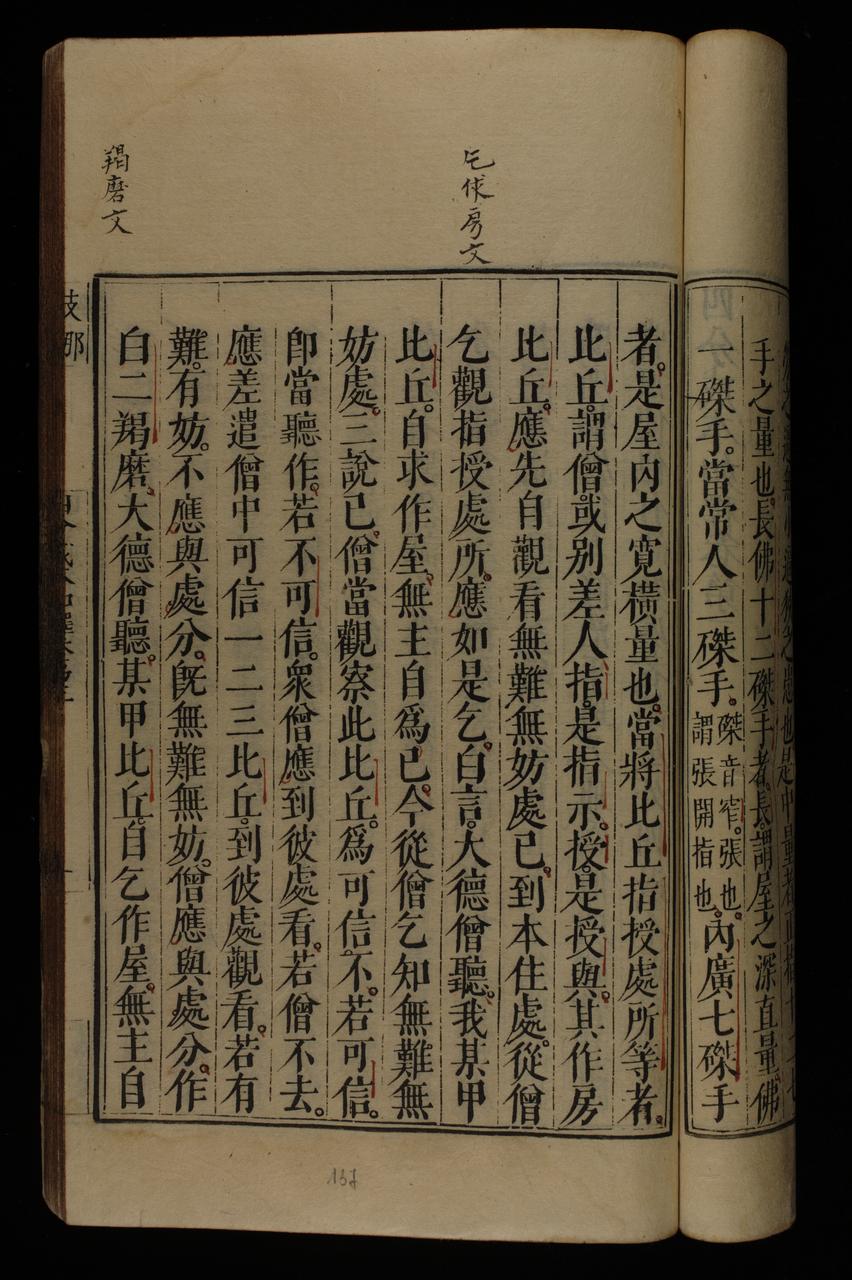 手之量也。長佛十二磔手者。長。謂屋之深直量。佛
一磔手。當常人三磔手。磔音窄。張也。謂張開指也。內廣七磔手
乞作房文
者。是屋內之寬橫量也。當將比丘指授處所等者。
比丘。謂僧。或別差人。指。是指示。授。是授與。其作房
比丘。應先自觀看無難無妨處已。到本住處。從僧
乞觀指授處所。應如是乞。白言。大德僧聽。我某甲
比丘。自求作屋。無主自爲己。今從僧乞知無難無
妨處。三說已。僧當觀察此比丘。爲可信不。若可信。
卽當聽作。若不可信。衆僧應到彼處看。若僧不去。
應差遣僧中可信一二三比丘。到彼處觀看。若有
難。有妨。不應與處分。旣無難無妨。僧應與處分。作
羯磨文
白二羯磨。大德僧聽。某甲比丘。自乞作屋。無主自
137